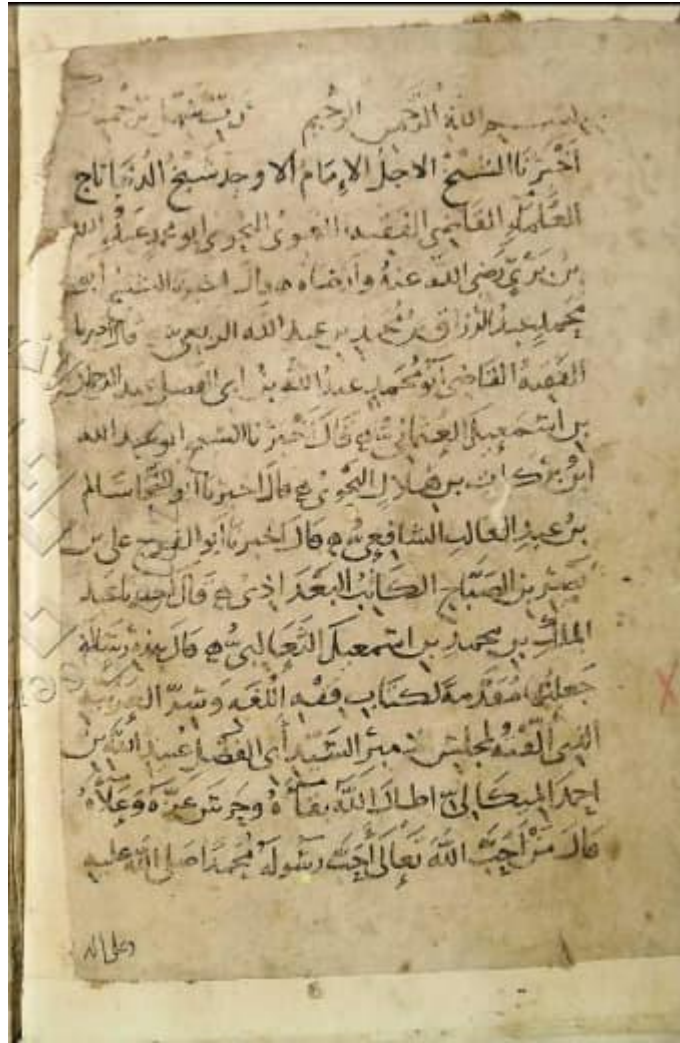 بسم الله الرحمن الرحيم
اخبرنا الشيخ الاجل الامام الاوحد شيخ الدنيا تاج
العلماء القاضي الفقيه النحوي ابو محمد عبد الله
بن بري رضى الله عنه وارضاه قال اخبرنا الشيخ ابو
محمد عبد الرزاق بن محمد بن عبد الله قال اخبرنا
الفقيه القاضي أبو محمد عبد الله بن ابى الفضل عبد الرحمن
بن اسمعيل العثماني قال أخبرنا الشيخ ابو عبد الله
بركات بن هلال النحوي قال اخبرنا ابو النجا سالم
بن عبد الغالب الشافعي قال اخبرنا ابو الفرج على بن
بن الصباح الكاتب البغداذي قال اخبرنا عبد
الملك بن محمد بن اسمعيل الثعالبي قال هذه رسالة
جعلتها مقدمة لكتاب فقه اللغه وسر العربية
الذي ألفته لمجلس الامير السيد أبى الفضل عبيد الله بن
احمد الميكالي اطال الله بقاءه وحرس عزه وعلاه
قال من أحب الله تعالى أحب رسوله محمدا صلى الله عليه
وعلى اله